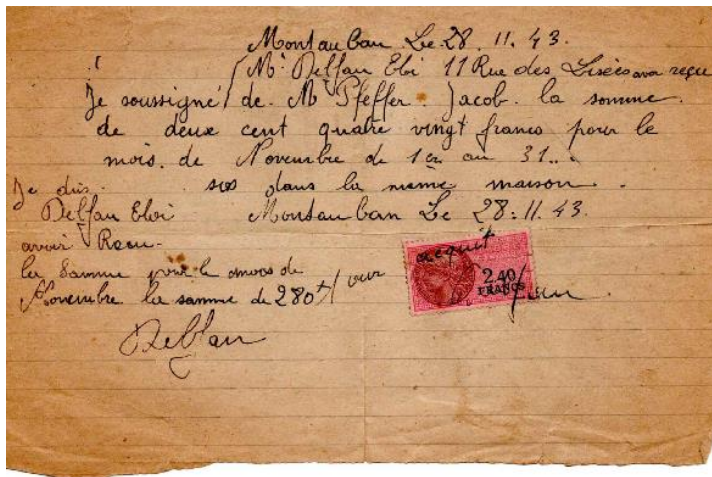 Montauban Le 28.11.43.
Mr Delfau Eloi 11 Rue des Lisées avoir reçu
Je soussigné de Mr Pfeffer Jacob. la somme
de deux cent quatre vingt francs pour le
mois de Novembre de 1er au 31..
Je dis. dans la même maison.
Delfau Eloi Montauban Le 28.11.43.
avoir Recu
la Somme pour le mois de
Novembre la somme de 280f
acquit
2.40
FRANCS
Delfau